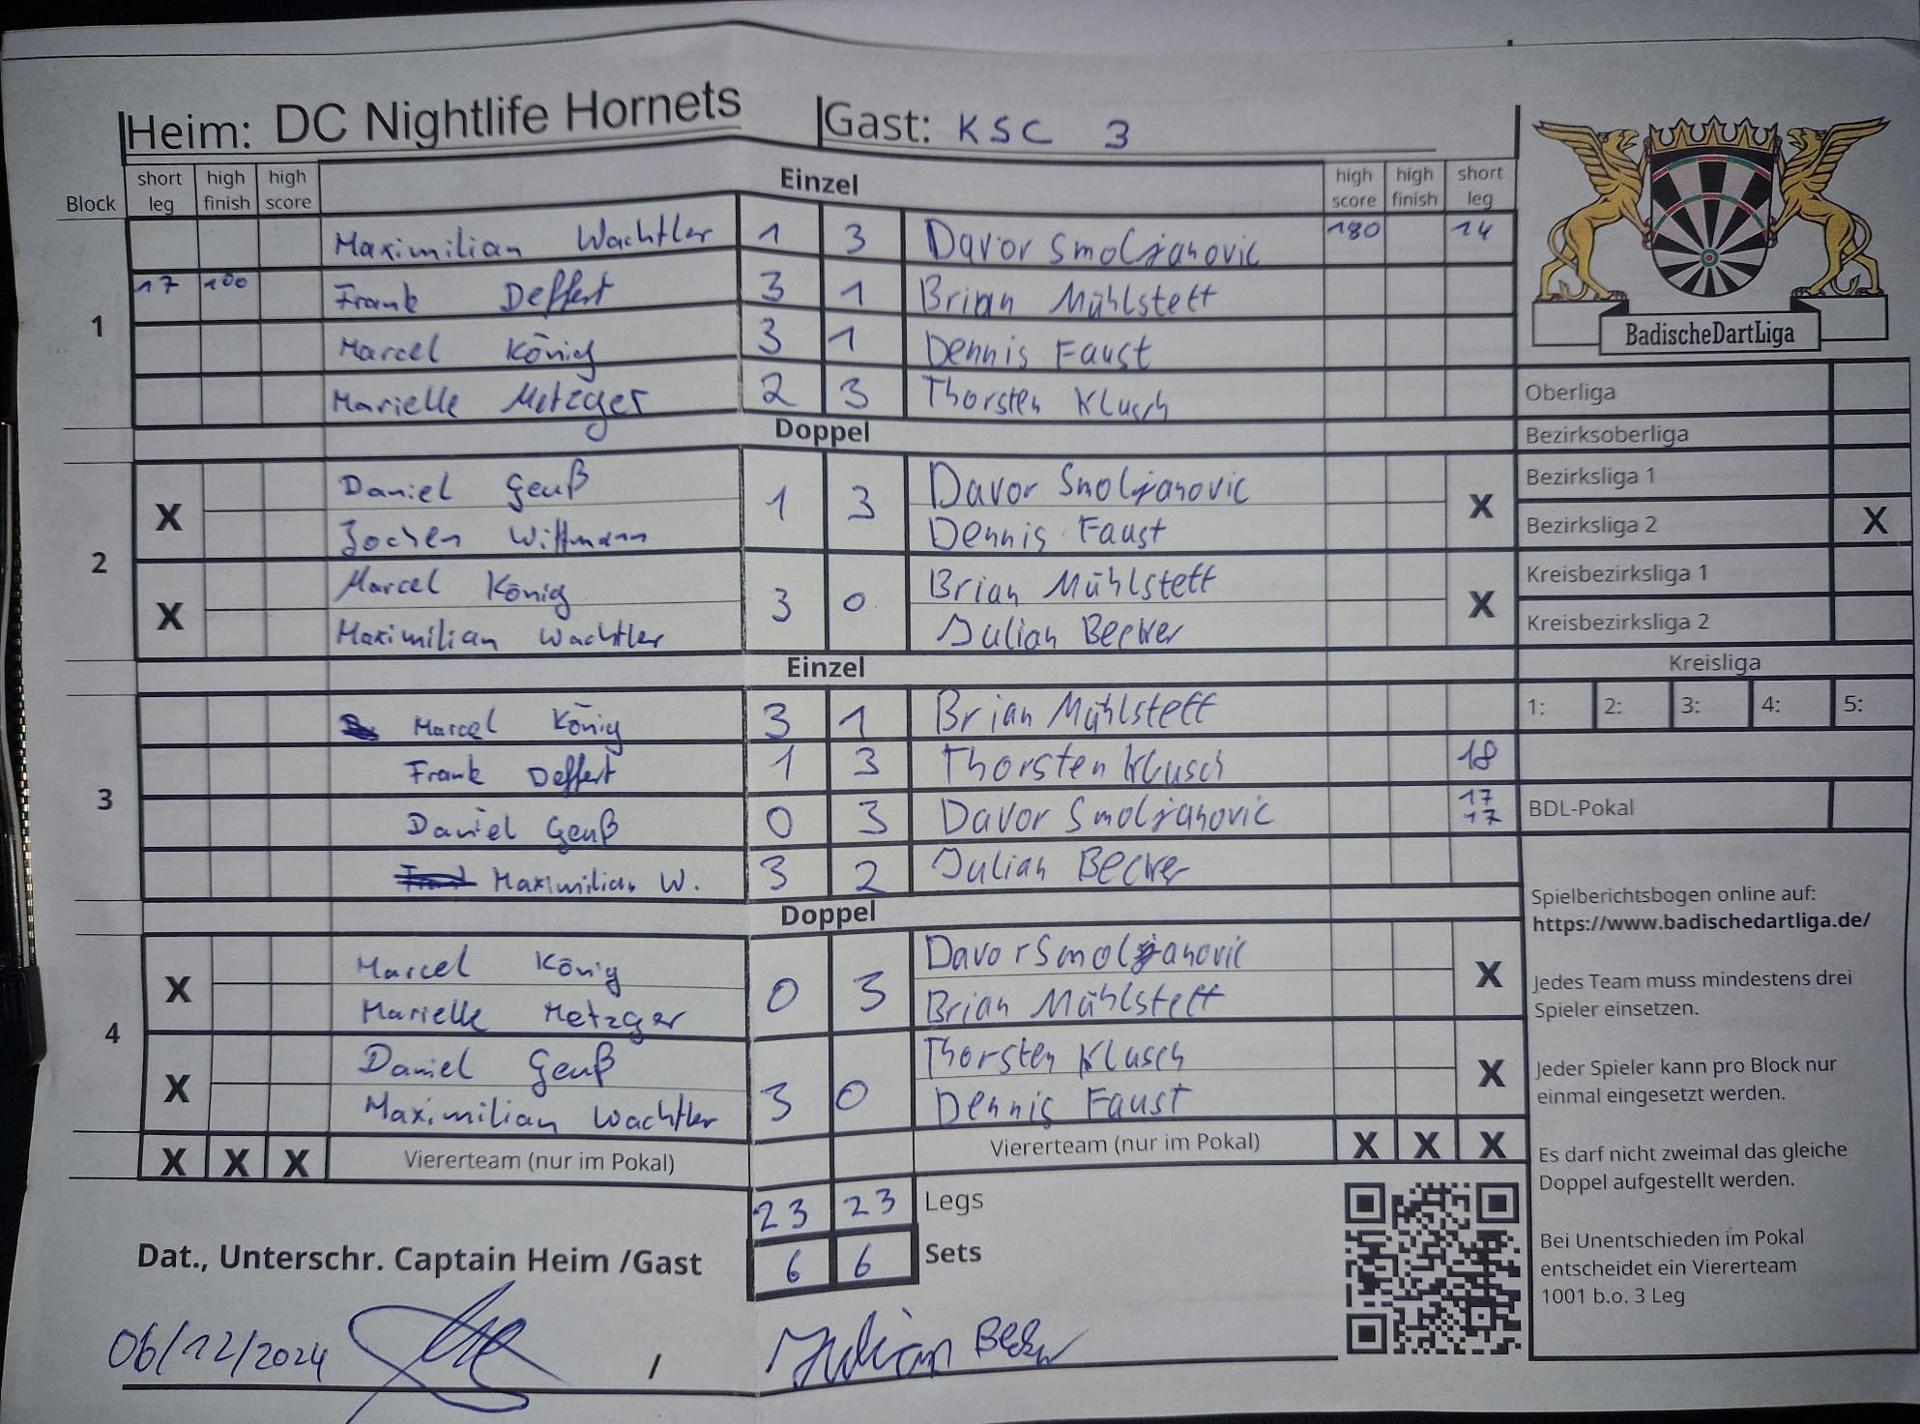 Heim: DC Nightlife Hornets Gast: KSC 3
Block short leg high finish high score Einzel high score high finish short leg
1
Maximilian Wachtler 1 3 Davor Smoljanovic 180 14
17 100 Frank Deffert 3 1 Brian Mühlstett
Marcel König 3 1 Dennis Faust
Marielle Metzger 2 3 Thorsten Klusch
Doppel
2
X Daniel Geuß 1 3 Davor Smoljanovic X
Jochen Wittmann Dennis Faust
X Marcel König 3 0 Brian Mühlstett X
Maximilian Wachtler Julian Becker
Einzel
3
Marcel König 3 1 Brian Mühlstett
Frank Deffert 1 3 Thorsten Klusch 18
Daniel Geuß 0 3 Davor Smoljanovic 17 17
Maximilian W. 3 2 Julian Becker
Doppel
4
X Marcel König 0 3 Davor Smoljanovic X
Marielle Metzger Brian Mühlstett
X Daniel Geuß 3 0 Thorsten Klusch X
Maximilian Wachtler Dennis Faust
X X X Viererteam (nur im Pokal) Viererteam (nur im Pokal) X X X
23 23 Legs
6 6 Sets
Dat., Unterschr. Captain Heim /Gast
06/12/2024 / Julian Becker
BadischeDartLiga
Oberliga
Bezirksoberliga
Bezirksliga 1
Bezirksliga 2 X
Kreisbezirksliga 1
Kreisbezirksliga 2
Kreisliga
1: 2: 3: 4: 5:
BDL-Pokal
Spielberichtsbogen online auf:
https://www.badischedartliga.de/
Jedes Team muss mindestens drei
Spieler einsetzen.
Jeder Spieler kann pro Block nur
einmal eingesetzt werden.
Es darf nicht zweimal das gleiche
Doppel aufgestellt werden.
Bei Unentschieden im Pokal
entscheidet ein Viererteam
1001 b.o. 3 Leg